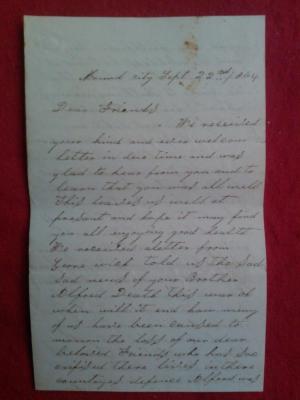 Mound City Sept. 22nd, 1864
Dear Friends
We received
your kind and ever welcom
letter in due time and was
glad to hear from you and to
learn that you was all well
This leaves us well at
present and hope it may find
you all enjoying good health
We received a letter from
wich told us the sad
sad news of your Brother
Alford Death this war oh
when will it end how many
of us have been caused to
mourn the loss of our dear
beloved Friends who has sac
rificed there lives in there
countryes defence Alford was